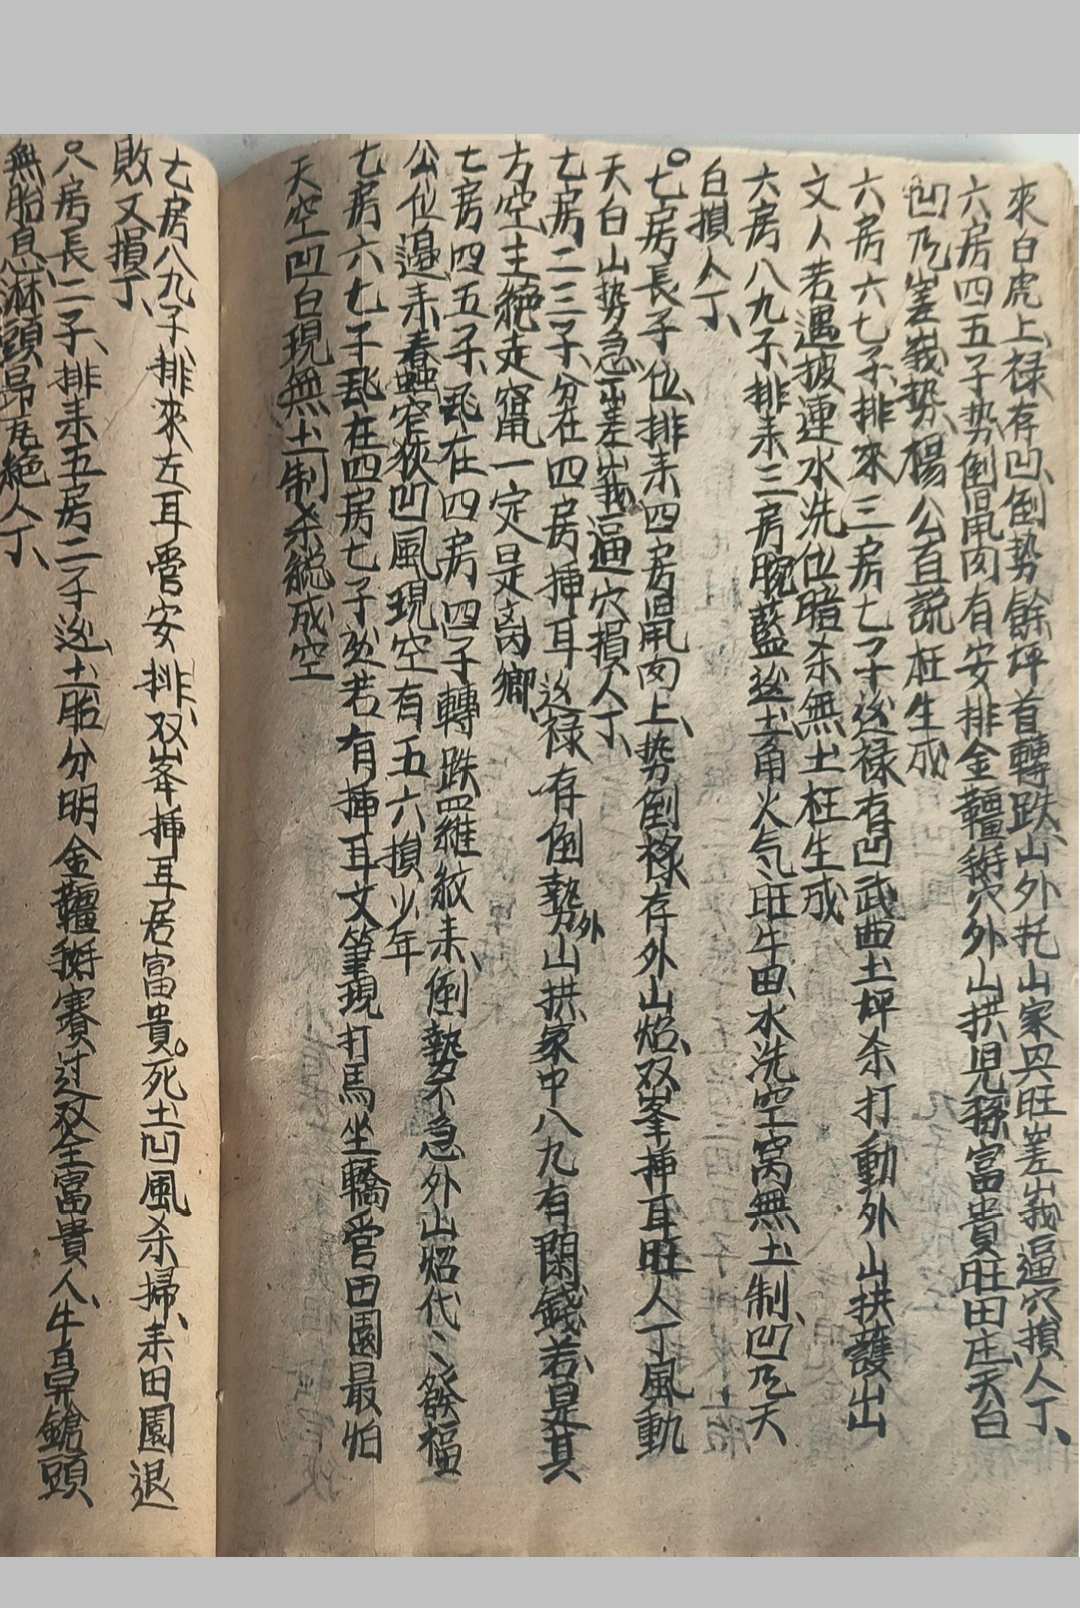 來白虎上禄存凹倒势餘坪首轉跌山外托山家兴旺差峩逼穴損人丁
六房四五子势倒凹有安排金穴外山拱児孫富貴旺田庄天白
凹乃差峩势楊公直説枉生成
六房六七子排來三房七子返禄存凹武曲土坪杀打動外山拱護出
文人若遇披連水洗位暗杀無土枉生成
六房八九子排耒三房腕藍返土角火气旺牛田水洗空窝無土制凹乃天
白損人丁
七房長子位排耒四房上势倒禄存外山焰双峯挿耳旺人丁風動
天白山势急差峩逼穴損人丁
七房二三子分在四房挿耳返禄存倒勢外山拱家中八九有閑錢若是其
方空主絶走竄一定是离鄉
七房四五子乱在四房四子轉跌羅紋耒倒勢不急外山焰代〻發福
公位邉耒看窄狹凹風現空有五六損少年
七房六七子乱在四房七子返若有挿耳文筆現打馬坐轎管田園最怕
天空凹白現無土制杀総成空
七房八九子排來左耳管安排双峯挿耳居富貴死土凹風杀掃耒田園退
敗又損丁
八房長二子排耒五房二子返土胎分明金賽过双全富貴人牛鼻鎗頭
無胎息淋頭昂瓦絶人丁